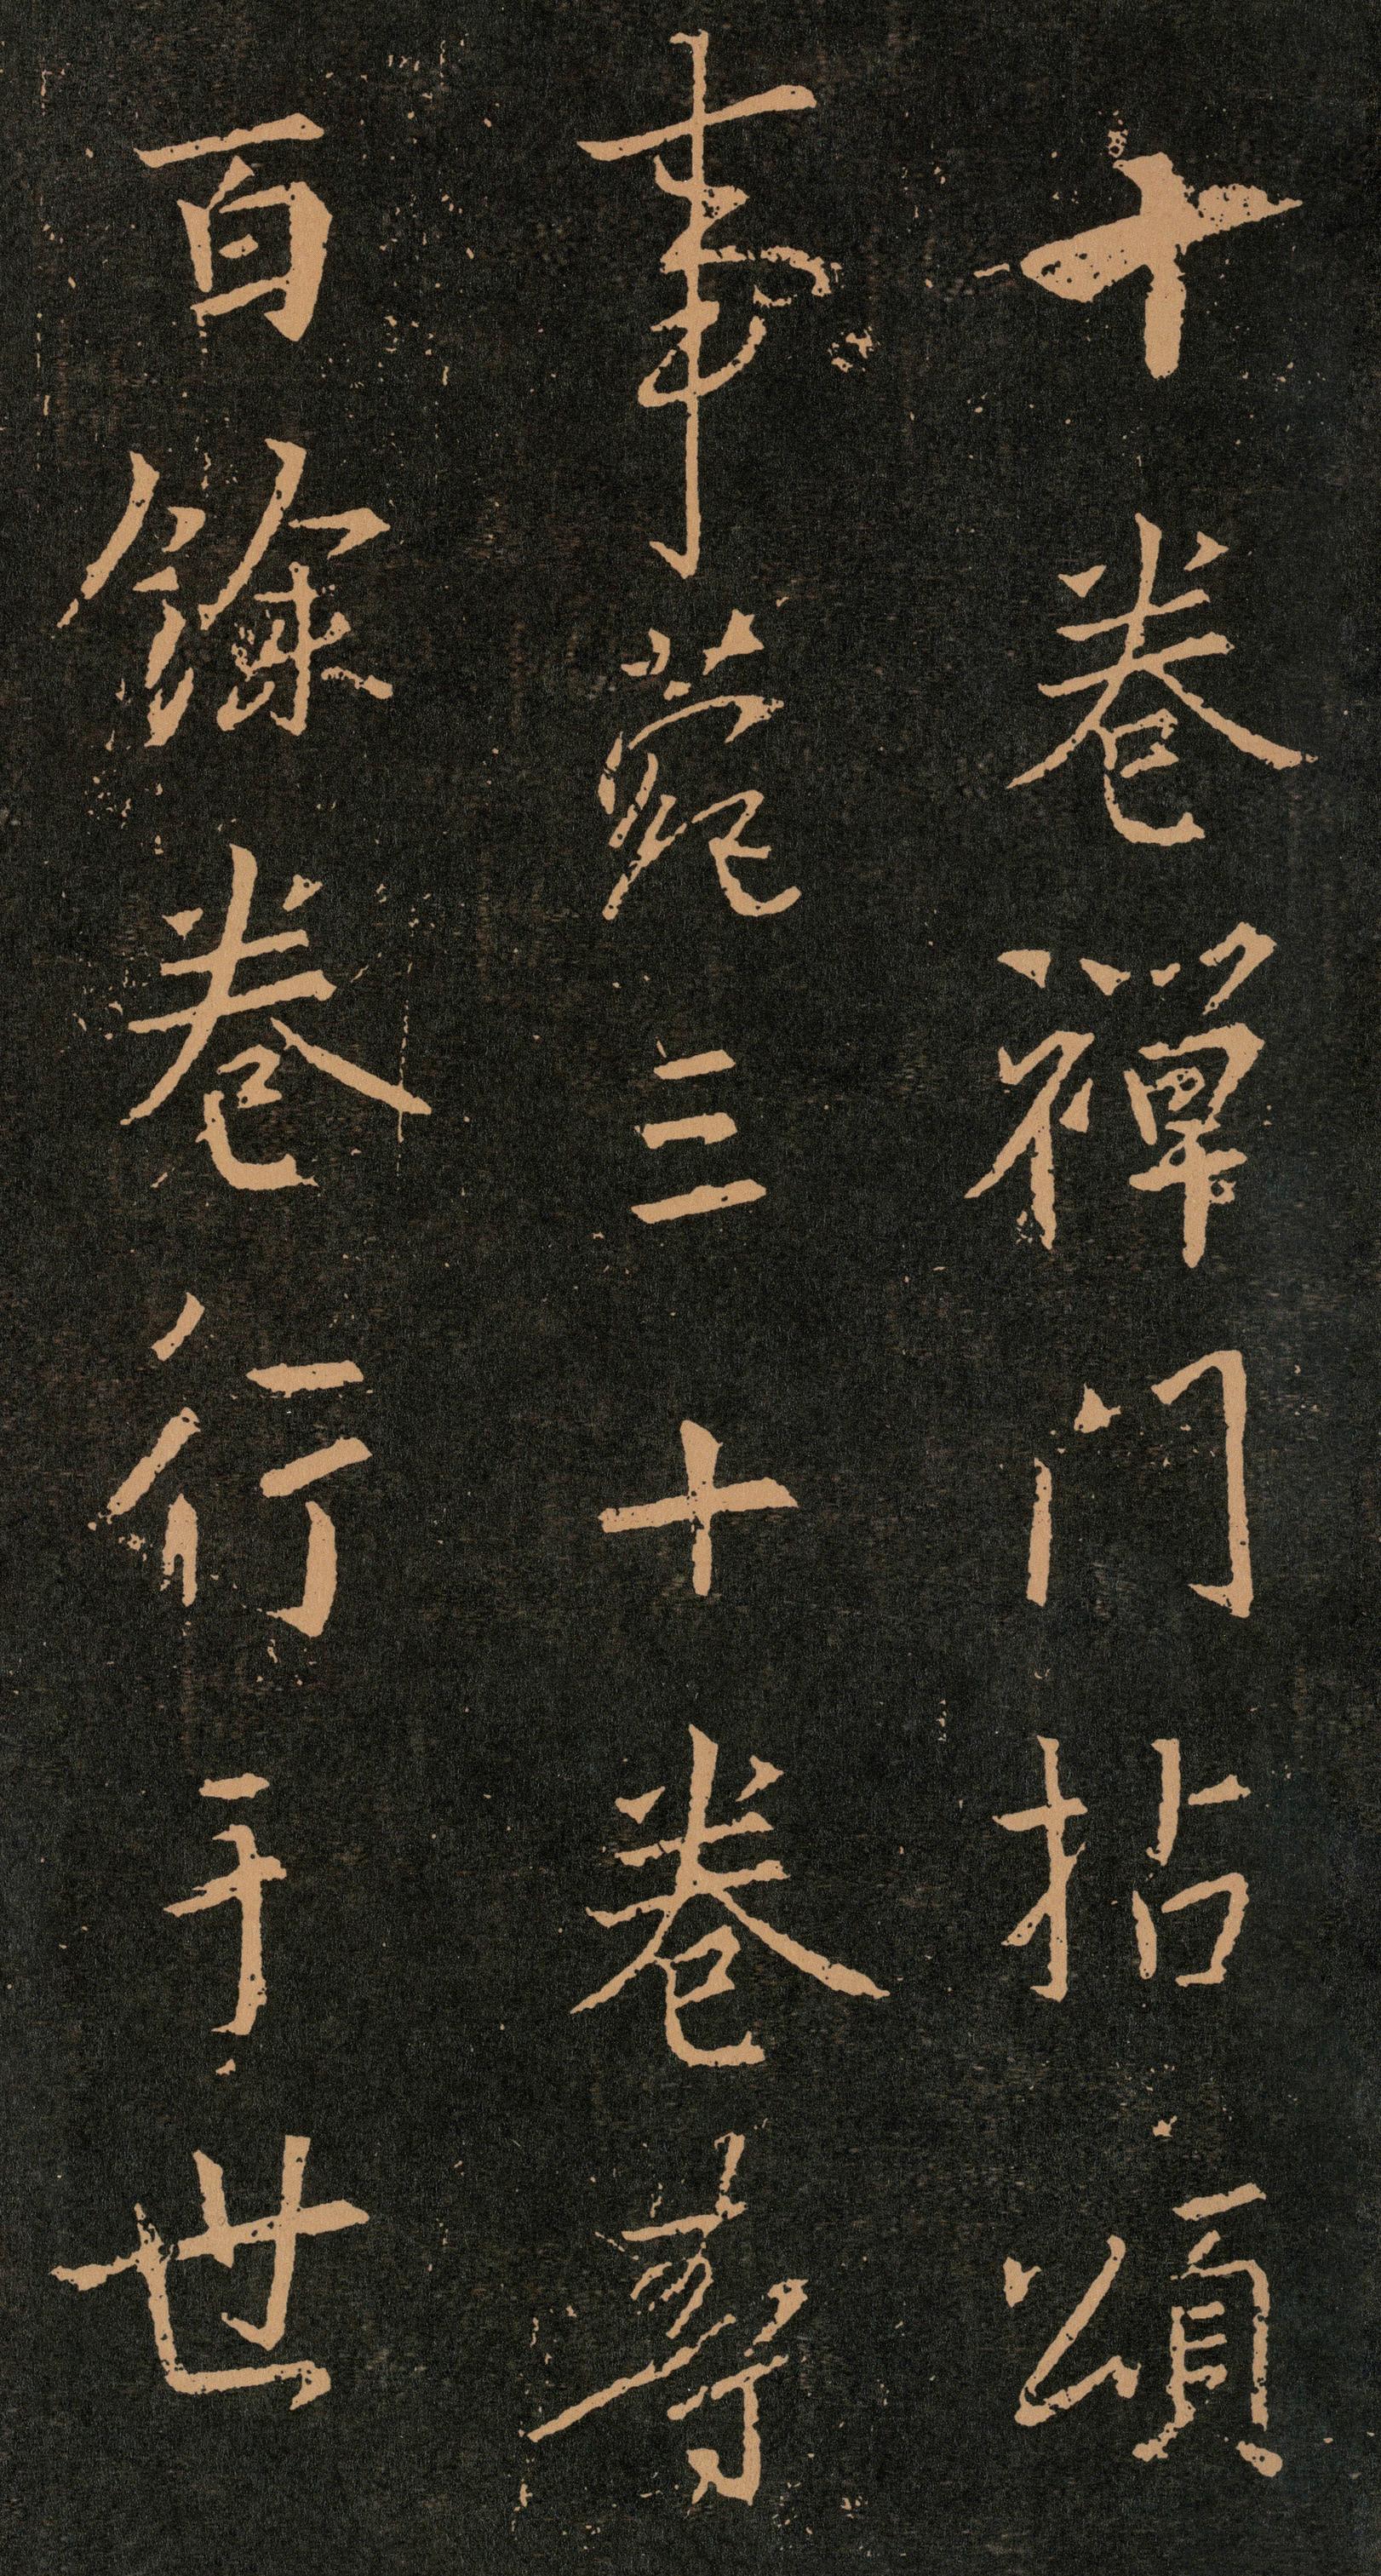 十卷禪门拈頌
事菀三十卷等
百餘卷行于世